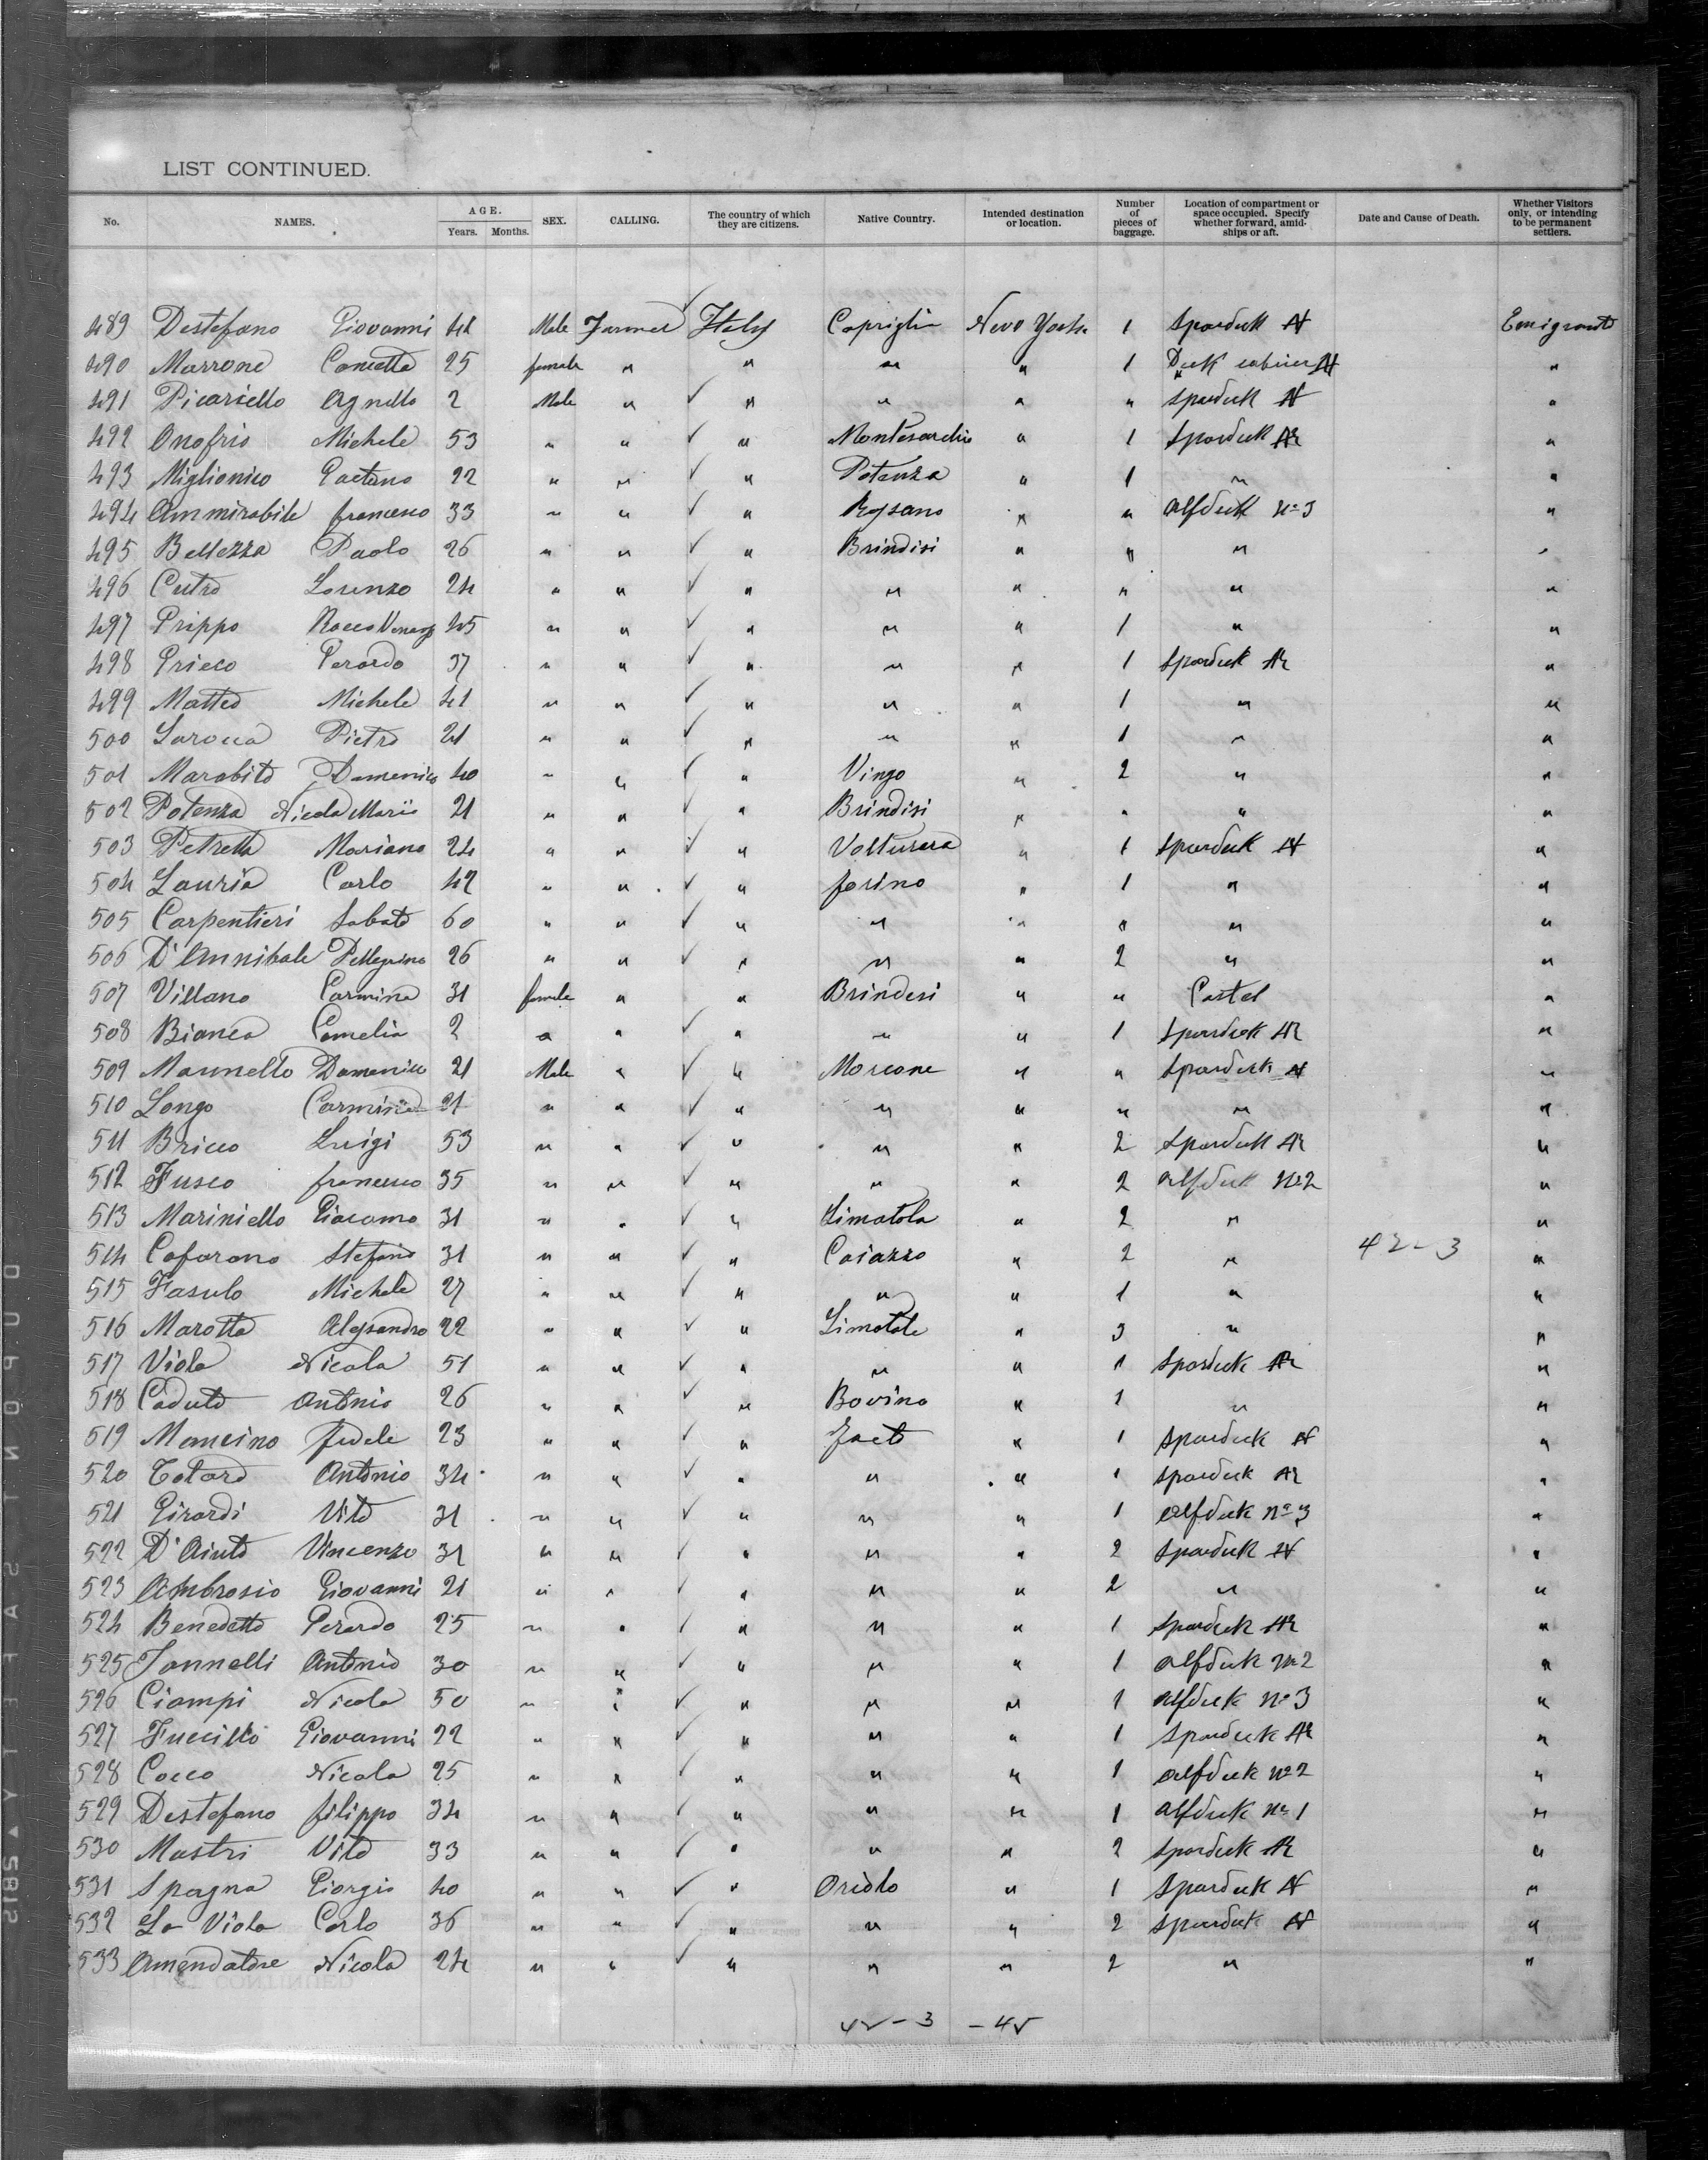 LIST CONTINUED.
No. NAMES. AGE. Years. Months. SEX. CALLING. The country of which they are citizens. Native Country. Intended destination or location. Number of pieces of baggage. Location of compartment or space occupied. Specify whether forward, amidships or aft. Date and Cause of Death. Whether Visitors only, or intending to be permanent settlers.
489 Destefano Giovanni 44 Male Farmer Italy Capriglia New York 1 Spardeck Emigrant
490 Marrone 25 female " " " " 1 Deck "
491 Picariello Agnello 2 Male " ✓ " " " " Spardeck "
492 Onofrio Michele 53 " " ✓ " Montesarchio " 1 Spardeck "
493 Miglionico Gaetano 22 " " ✓ " Potenza " 1 " "
494 Ammirabile francesco 33 " " ✓ " " " Alfdeck No 3 "
495 Bellezza Paolo 26 " " ✓ " Brindisi " " " "
496 Cutro Lorenzo 24 " " ✓ " " " " " "
497 Grippo Rocco 45 " " ✓ " " " 1 " "
498 Grieco Gerardo 37 " " ✓ " " " 1 Spardeck "
499 Matteo Michele 41 " " ✓ " " " 1 " "
500 Larocca Pietro 21 " " ✓ " " " 1 " "
501 Marabito Domenico 40 " " ✓ " Vingo " 2 " "
502 Potenza Nicola Maria 21 " " ✓ " Brindisi " " " "
503 Petretta Mariano 24 " " ✓ " Volturara " 1 Spardeck "
504 Lauria Carlo 42 " " ✓ " forino " 1 " "
505 Carpentieri Sabato 60 " " ✓ " " " " " "
506 D'Annibale Pellegrino 26 " " ✓ " " " 2 " "
507 Villano Carmina 31 female " " Brindesi " " Castel "
508 Bianca Camelia 2 " " ✓ " " " 1 Spardeck "
509 Mannello Domenico 21 Male " ✓ " Morcone " " Spardeck "
510 Longo 21 " " ✓ " " " " " "
511 Bricco Luigi 53 " " ✓ " " " 2 Spardeck "
512 Fusco francesco 35 " " ✓ " " " 2 Alfdeck No 2 "
513 Mariniello Giacomo 31 " " ✓ " Limatola " 2 " "
514 Cafarano Stefano 31 " " ✓ " Caiazzo " 2 " 42-3 "
515 Fasulo Michele 27 " " ✓ " " " 1 " "
516 Marotta Alessandro 22 " " ✓ " Limatola " 3 " "
517 Viola Nicola 51 " " ✓ " " " 1 Spardeck "
518 Caduto Antonio 26 " " ✓ " Bovino " 1 " "
519 Mancino fedele 23 " " ✓ " Faeto " 1 Spardeck "
520 Totaro Antonio 34 " " ✓ " " " 1 Spardeck "
521 Girardi Vito 31 " " ✓ " " " 1 Alfdeck No 3 "
522 D'Aiuto Vincenzo 31 " " ✓ " " " 2 Spardeck "
523 Ambrosio Giovanni 21 " " ✓ " " " 2 " "
524 Benedetto Gerardo 25 " " ✓ " " " 1 Spardeck "
525 Iannelli Antonio 30 " " ✓ " " " 1 Alfdeck No 2 "
526 Ciampi Nicola 50 " " ✓ " " " 1 Alfdeck No 3 "
527 Fuccillo Giovanni 22 " " ✓ " " " 1 Spardeck "
528 Cocco Nicola 25 " " ✓ " " " 1 Alfdeck No 2 "
529 Destefano filippo 34 " " ✓ " " " 1 Alfdeck No 1 "
530 Mastri Vito 33 " " ✓ " " " 2 Spardeck "
531 Spagna Giorgio 40 " " ✓ " Oriolo " 1 Spardeck "
532 La Viola Carlo 36 " " ✓ " " " 2 Spardeck "
533 Amendatore Nicola 24 " " ✓ " " " 2 " "
42-3 - 45